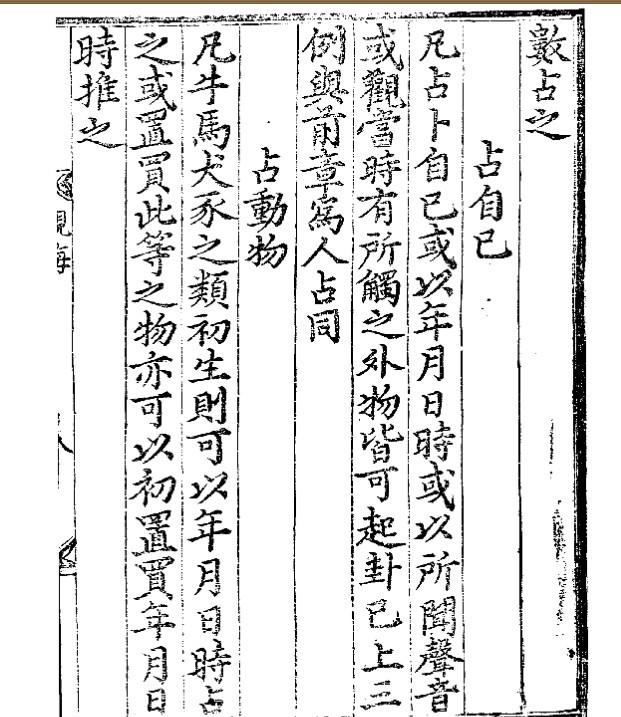 數占之
占自己
凡占卜自己或以年月日時或以所聞聲音
或觀當時有所觸之外物皆可起卦已上三
例與前章寫人占同
占動物
凡牛馬犬豕之類初生則可以年月日時占
之或置買此等之物亦可以初置買年月日
時推之